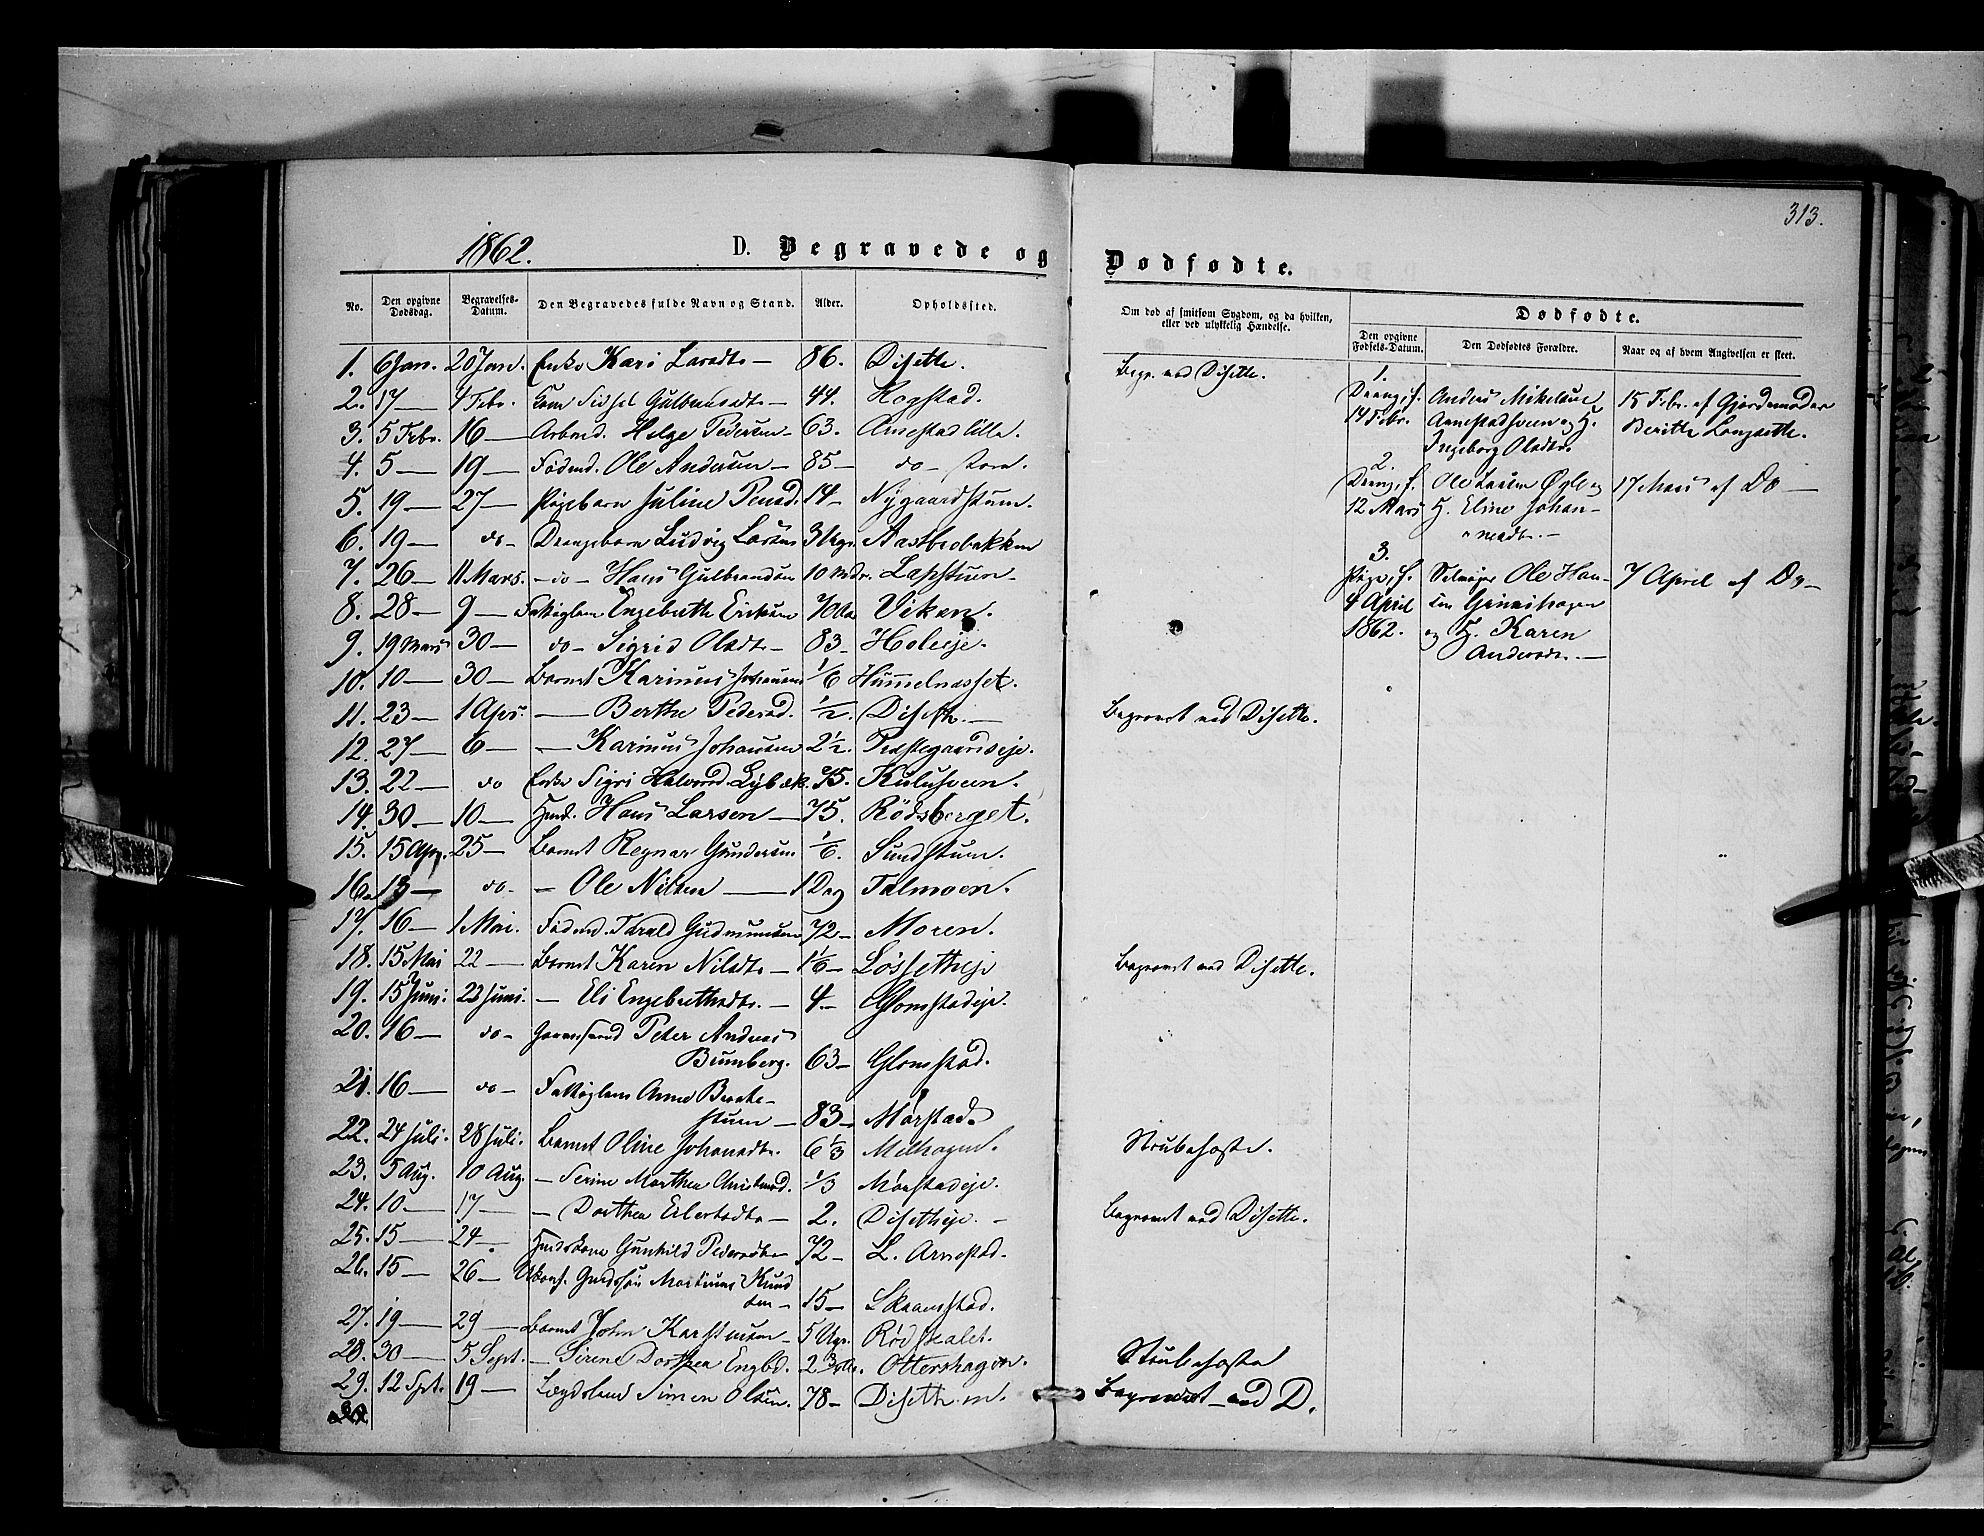 313.
1862. D. Begravede og Dødfødte.
No. Den opgivne Dødsdag. Begravelses-Datum. Den Begravedes fulde Navn og Stand. Alder. Opholdssted.
Om død af smitsom Sygdom, og da hvilken, eller ved ulykkelig Hændelse.
Dødfødte.
Den opgivne Fødsels-Datum. Den Dødfødtes Forældre. Naar og af hvem Angivelsen er skeet.
1. 6 Jan. 20 Jan. Enke Kari Larsdt. — 86. Disette. Begr. ved Disette.
2. 17 — 4 Febr. Kone Sidsel Gulbrandsdt. — 44. Hogstad.
3. 5 Febr. 16 — Arbmd. Helge Pedersen — 63. Arnestad lille.
4. 5 — 19 — Føderd. Ole Andersen — 85 — do — store.
5. 19 — 27 — Pigebarn Juline 14 — Nygaardstuen.
6. 19 — do — Drengebarn Ludvig Larsen 3 Ugr. Aastbrobakken
7. 26 — 11 Mars. — do — Hans Gulbrandsen 10 Mdr. Lapstuen.
8. 28 — 9 — Fattiglem Engebreth Eriksen 70 Viken.
9. 19 Mars 30 — do — Sigrid Olsdt. — 83 — Holeeje.
10. 10 — 30 — Barnet Karinus Johansen 1/6 Hummelnæsset.
11. 23 — 1 Apr. — Berthe Pedersd. 1/2. Diseth. — Begravet ved Disette.
12. 27 — 6 — — Karinus Johansen 2 1/2. Præstegaardseje.
13. 22 — do Enke Sigri Halvorsd. 75. Kulusveen.
14. 30 — 10 — Hans Larsen — 75. Rødsberget.
15. 15 Apr. 25 — Barnet Regnar Gundersen 1/6. Sundstuen.
16. 13 — do — — Ole Nilsen — 1 Dag Talmoen.
17. 16 — 1 Mai. Føderd. Gudmundsen 72 — Moren.
18. 15 Mai 22 — Barnet Karen Nilsdt. — 1 1/6 — Løssetheje Begravet ved Disette.
19. 15 Juni. 22 Juni. — Eli Engebrethsdt. — 4 — Glomstadeje.
20. 16 — do — Peter Andreas
Brunberg. 63 — Glomstad.
21. 16 — do — Fattiglem Anne
stuen — 83 — Mørstad.
22. 24 Juli. 28 Juli. Barnet Oline Johansdt. 6 1/3 Melhagen. Strubehoste.
23. 5 Aug. 10 Aug. — Serine Marthea 1/3 Mørstadeje.
24. 10 — 17 — — Dorthea Eilertsdt. — 2. Disetheje. — Begravet ved Disette.
25. 15 — 24 — Gunhild Pedersdt. 72 — L. Arnestad.
26. 15 — 26 — Ukonf. Martinus Knud
sen — 15 — Skramstad.
27. 19 — 29 — Barnet John Karstensen — 5 Ugr. Rødskalet.
28. 30 — 5 Sept. — Sirene Dorthea Engbd. 2 Ottershagen. Strubehoste
29. 12 Spt. 19 — Lægdslem Simen Olsen. 78 — Diseth Begravet ved D.
1.
Dreng, f. 14 Febr. Anders Mikelsen
Arnestadsveen og H.
Ingeborg Olsdtr.
15 Febr. af Gjordemoder
Beritte Langsette.
2.
Dreng, f. 12 Mars Ole Larsen
H. Eline Johan-
nesdt. —
17 Mars af Do —
3.
Pige, f. 4 April 1862. Selvejer Ole Han-
sen
og H. Karen
Andersdt. —
7 April af Do —